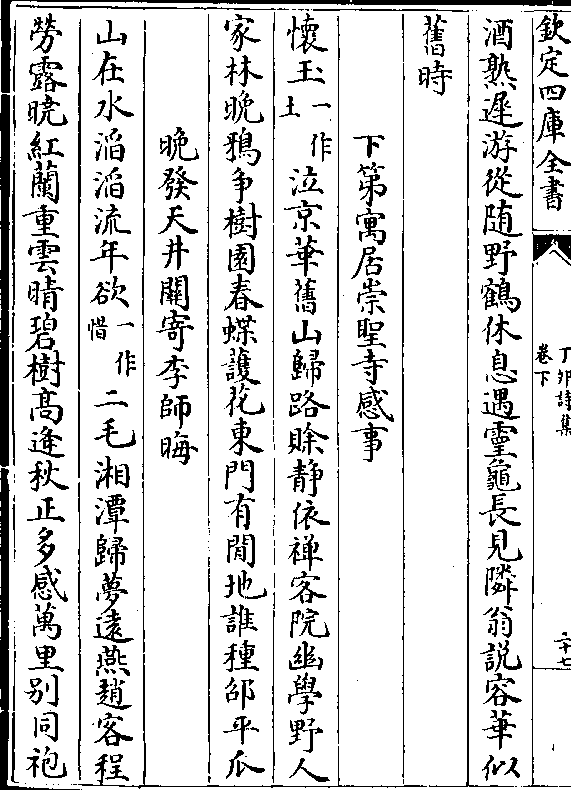 欽定四庫全書
丁卯詩集
卷下
二十七
酒熟遲游從随野鶴休息遇靈龜長見隣翁説容華似
舊時
下第寓居崇聖寺感事
懷玉一作土泣京華舊山歸路賒静依禅客院幽學野人
家林晚鴉争樹園春蝶護花東門有閒地誰種邵平瓜
晚發天井關寄李師晦
山在水滔滔流年欲一作惜二毛湘潭歸夢遠燕趙客程
勞露曉紅蘭重雲晴碧樹髙逢秋正多感萬里别同袍